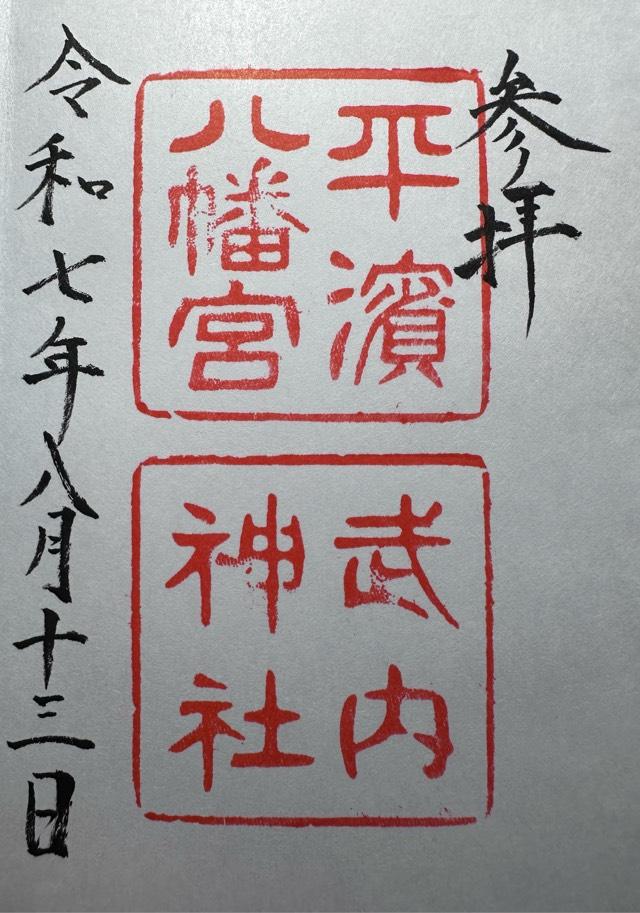 参拝
平濱
八幡宮
武内
神社
令和七年八月十三日